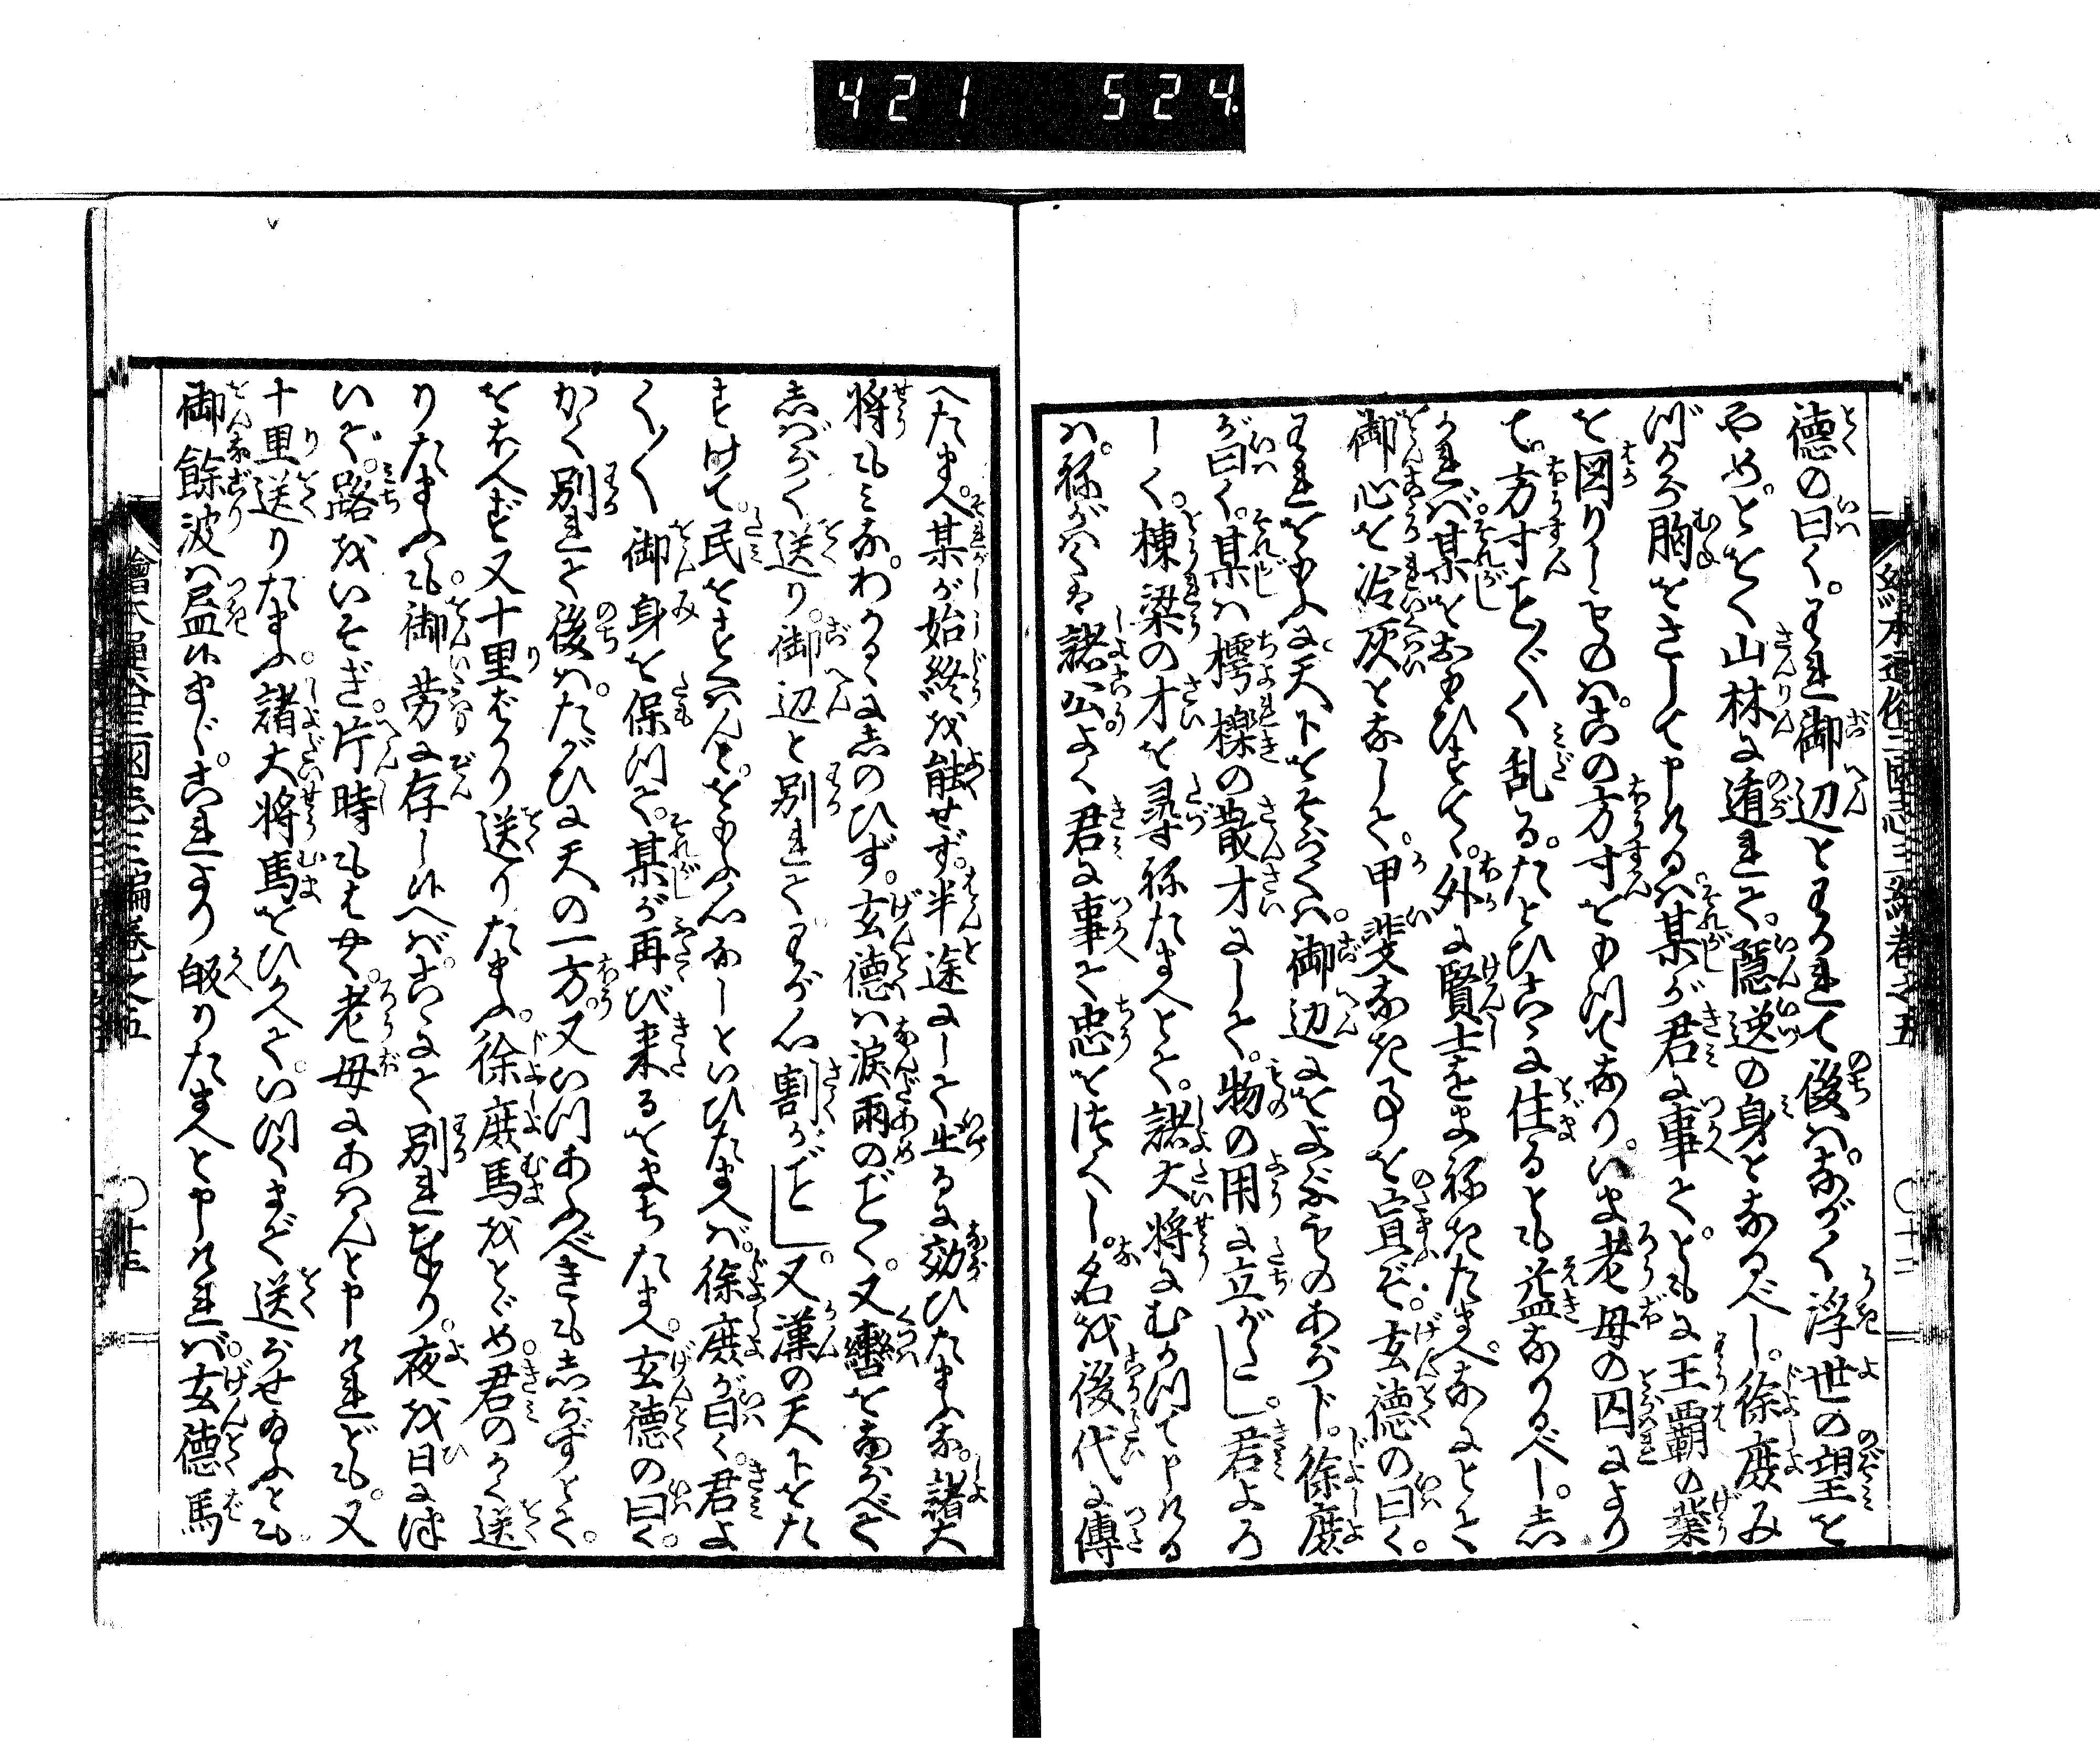 421 524
徳の曰く。われ御辺とわかれて後は。ながく浮世の望を
やめ。とをく山林に遁れて。隠逸の身となるべし。徐庶み
づから胸をさして申けるは。某が君に事て。ともに王覇の業
を図りしものは。此の方寸をもつてなり。いま老母の囚により
て。方寸すでに乱る。たとひこゝに住るとも益なかるべし。し
かれば某をおもひすて。外に賢士をまねきたまへ。なにとて
御心を冷灰となして。甲斐なき事を宣ぞ。玄徳の曰く。
われをもふに天下をもとめば。御辺にをよぶものあらじ。徐庶
が曰く。某は樗櫟の散才にして。物の用に立がたし。君よろ
しく。棟梁の才を尋ねたまへとて。諸大将にむかつて申ける
は。ねがはくは諸公よく君に事て忠をつくし。名を後代に傳
へたまへ。某が始終を能せず。半途にして出るに効ひたまふな。諸大
将もみな。わかるゝにしのびず。玄徳は涙雨のごとく。又轡をならべて
しばらく送り。御辺と別れてわが心割がごとし。又漢の天下をた
すけて。民をすくはんとをもふ心なしといひたまへば。徐庶が曰く。君よ
く〳〵御身を保つて。某が再び来るをまちたまへ。玄徳の曰く。
かく別れて後は。たがひに天の一方。又いつあふべきもしらずとて。
をもへず又十里ばかり送りたまふ。徐庶馬をとゞめ。君のかく送
りたまふも。御労に存し候へば。こゝにて別れ奉り。夜を日に継
いで。路をいそぎ。片時もはやく。老母にあはんと申けれども。又
十里送りたまふ。諸大将馬をひかへて。いつくまで送らせ給ふとも
御餘波は尽候まじ。これより皈りたまへと申ければ。玄徳馬
繪本通俗三國志三編巻之五 〇十二
繪本通俗三国志三編巻之五 〇十三